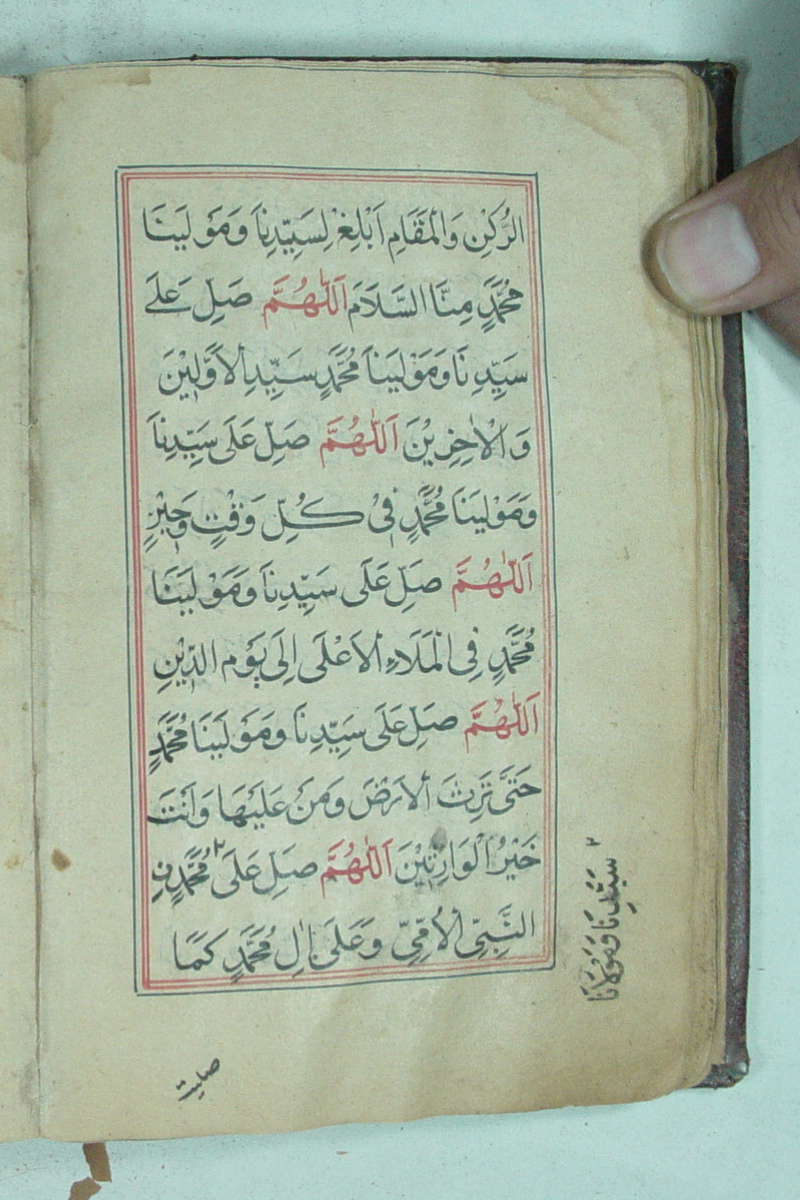 الرُّكْنِ وَالْمَقَامِ اَبْلِغْ لِسَيِّدِنَا وَمَوْلَيٰنَا
مُحَمَّدٍ مِنَّا السَّلَامَ اَللّٰهُمَّ صَلِّ عَلَى
سَيِّدِنَا وَمَوْلَيٰنَا مُحَمَّدٍ سَيِّدِ الْاَوَّلِيْنَ
وَالْاٰخِرِيْنَ اَللّٰهُمَّ صَلِّ عَلَى سَيِّدِنَا
وَمَوْلَيٰنَا مُحَمَّدٍ فِيْ كُلِّ وَقْتٍ وَّحِيْنٍ
اَللّٰهُمَّ صَلِّ عَلَى سَيِّدِنَا وَمَوْلَيٰنَا
مُحَمَّدٍ فِي الْمَلَاءِ الْاَعْلَى اِلَى يَوْمِ الدِّيْنِ
اَللّٰهُمَّ صَلِّ عَلَى سَيِّدِنَا وَمَوْلَيٰنَا مُحَمَّدٍ
حَتَّى تَرِثَ الْاَرْضَ وَمَنْ عَلَيْهَا وَاَنْتَ
خَيْرُ الْوَارِثِيْنَ اَللّٰهُمَّ صَلِّ عَلَى٢ مُحَمَّدٍ نِ
النَّبِيِّ الْاُمِّيِّ وَعَلَى اٰلِ مُحَمَّدٍ كَمَا
٢ سَيِّدِنَا وَمَوْلَانَا
صليت